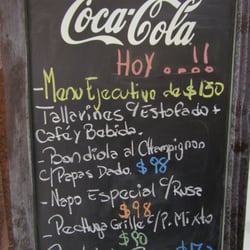 Coca-Cola
HOY....!!
-Menu Ejecutivo de $130
Tallarines c/Estofado +
Café y Bebida.
-Bondiola al Champignon
c/Papas Dado $98
-Napo Especial c/Rusa
$98
-Pechuga Grille c/P. Mixto
$90